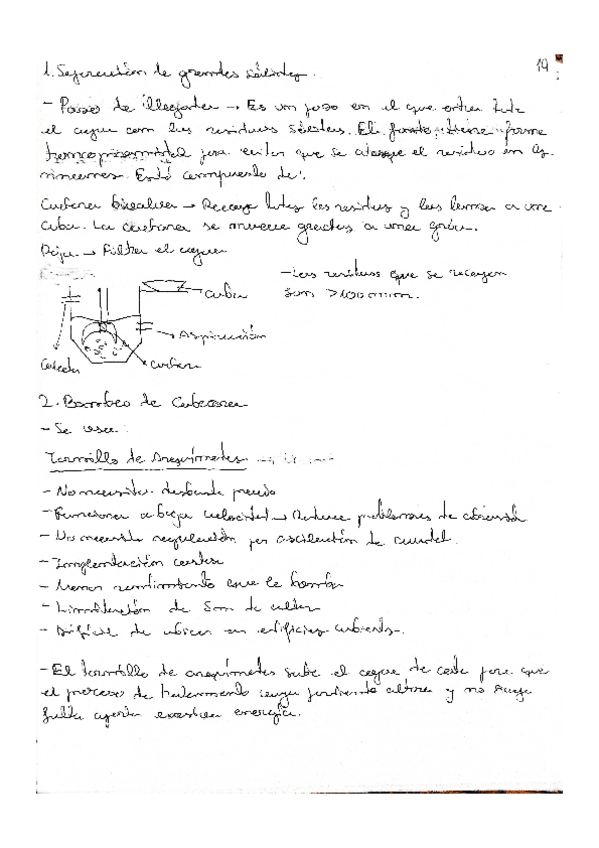 19
1. Separación de grandes sólidos.
- Pozo de llegada → Es un pozo en el que entra toda
el agua con los residuos sólidos. El fondo tiene forma
para evitar que se atasque el residuo en los
rincones. Está compuesto de:
Cuchara bivalva → Recoge todos los residuos y los lleva a una
cuba. La cuchara se mueve gracias a una grúa.
Reja → Filtra el agua
- Los residuos que se recogen
son >100 mm.
cuba
Aspiración
cuchara
2. Bombeo de Cabecera
- Se usa:
Tornillo de Arquímedes
- No necesita desbaste previo
- Funciona a baja velocidad → Reduce problemas de abrasión
- No necesita regulación por oscilación de caudal.
- Implantación costosa
- Menor rendimiento que la bomba
- Limitación de 8m de altura
- Difícil de ubicar en edificios cubiertos.
- El tornillo de arquímedes sube el agua de cota para que
el proceso de tratamiento vaya perdiendo altura y no haga
falta aportar energía.